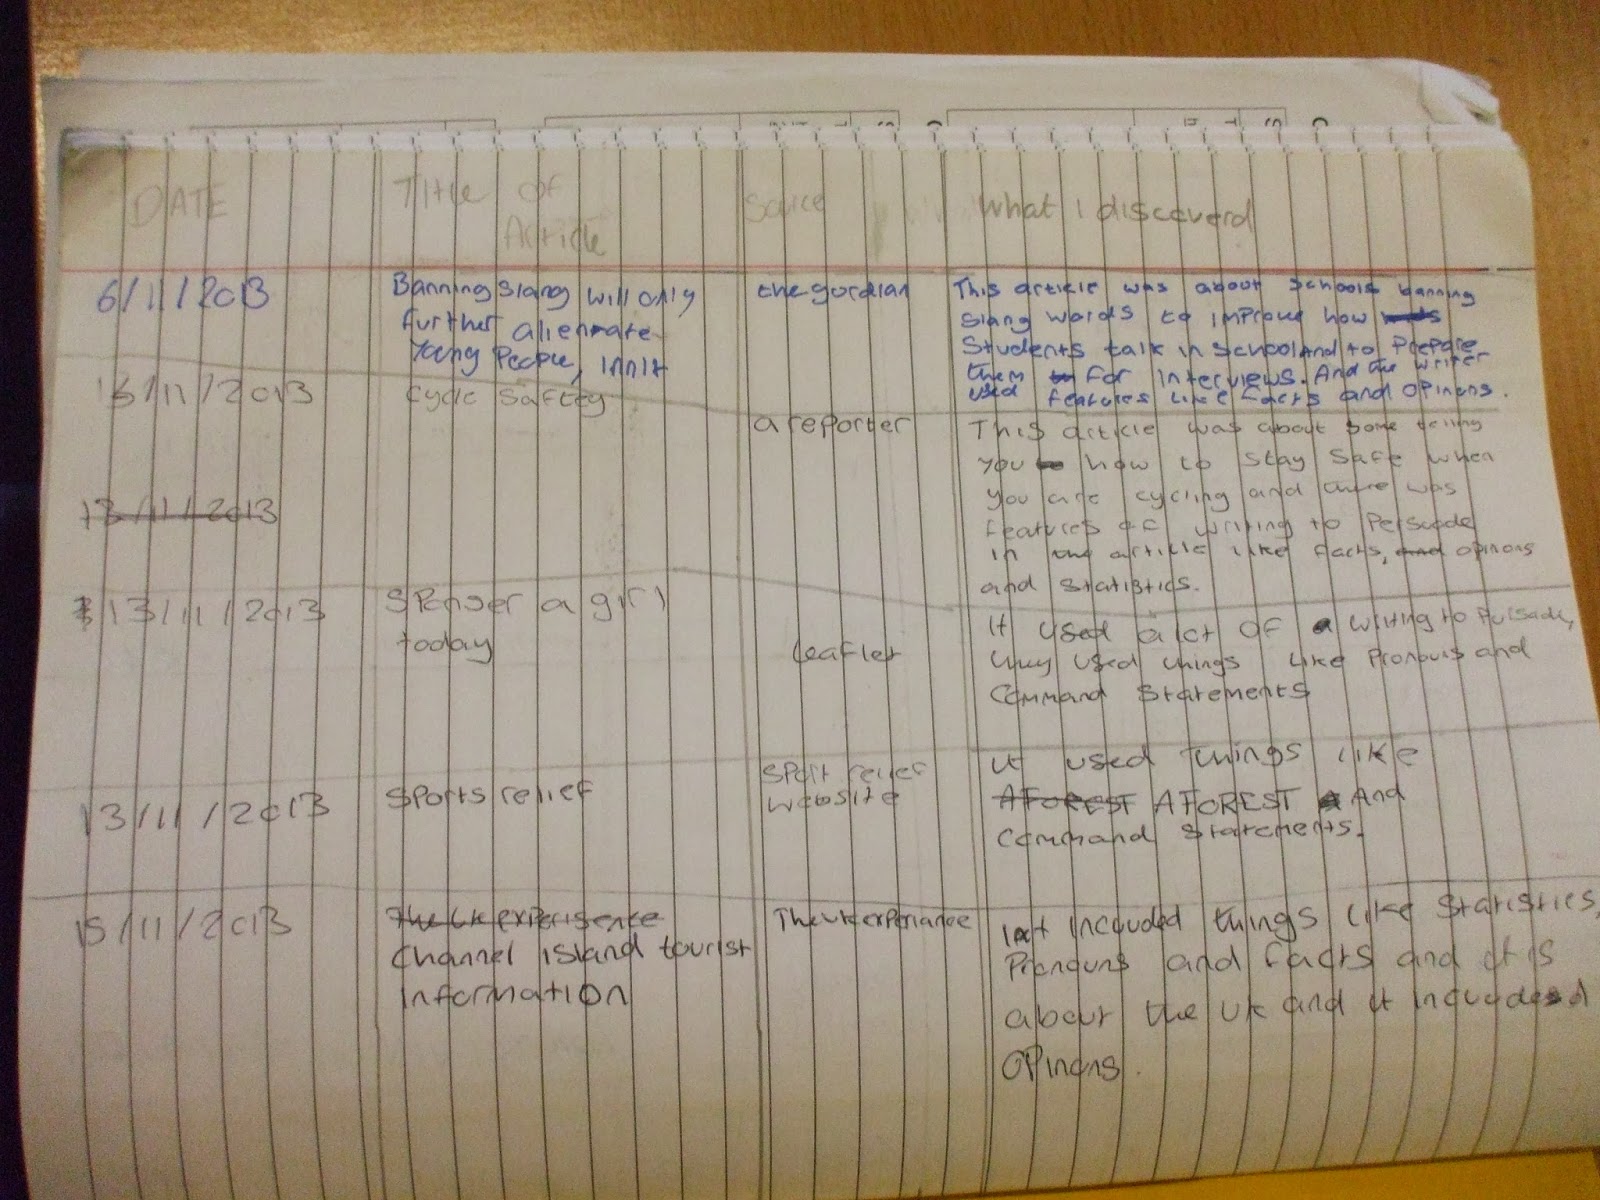 DATE
Title of
Article
Source
What I discoverd
6/11/2013
Banning slang will only
further alienmate
Young People, innit
the gordian
This article was about schools banning
slang words to improve how
students talk in school and to prepare
them for interviews. And the writer
used features like facts and opinons.
13/11/2013
cycle saftey
a reporter
This article was about some telling
you how to stay safe when
you are cycling and there was
features of writing to persuade
in the article like facts, and opinons
and statistics.
13/11/2013
13/11/2013
SPenser a girl
today
leaflet
it used a lot of writing to Pursade,
they used things like Pronouns and
command statements
13/11/2013
Sports relief
sport relief
website
it used things like
AFOREST AFOREST And
command statements.
15/11/2013
The uk experisence
Channel island tourist
information
The uk experiance
it incuuded things like statistics,
Pronouns and facts and it is
about the uk and it incuuded
opinons.